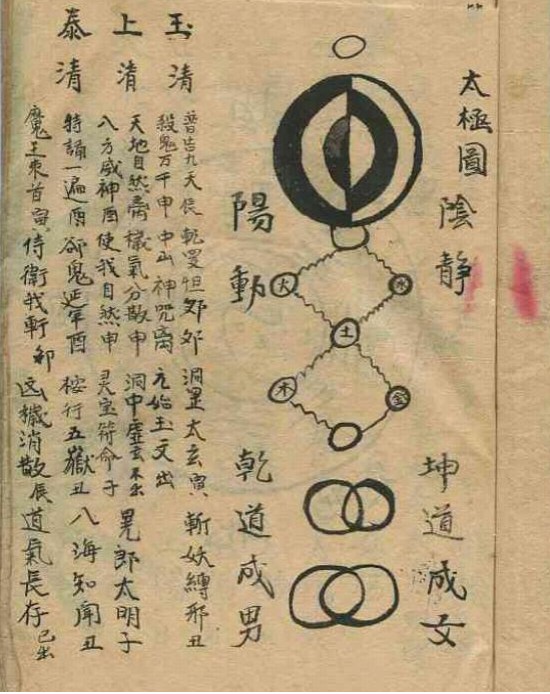 太極圖
陰靜
陽動
火
水
土
木
金
坤道成女
乾道成男
玉清
上清
泰清
普告九天 乾 怛 洞罡太玄寅 斬妖縛邪丑
殺鬼万千申 中山神咒离 元始玉文出
天地自然 穢氣分散申 洞中虛玄 出 晃郎太明子
八方威神酉 使我自然申 灵宝符命子
特誦一遍酉 卻鬼延年酉 桉行五嶽丑 八海知聞丑
魔王束首寅 侍衛我軒卯 凶穢消散辰 道氣長存巳出